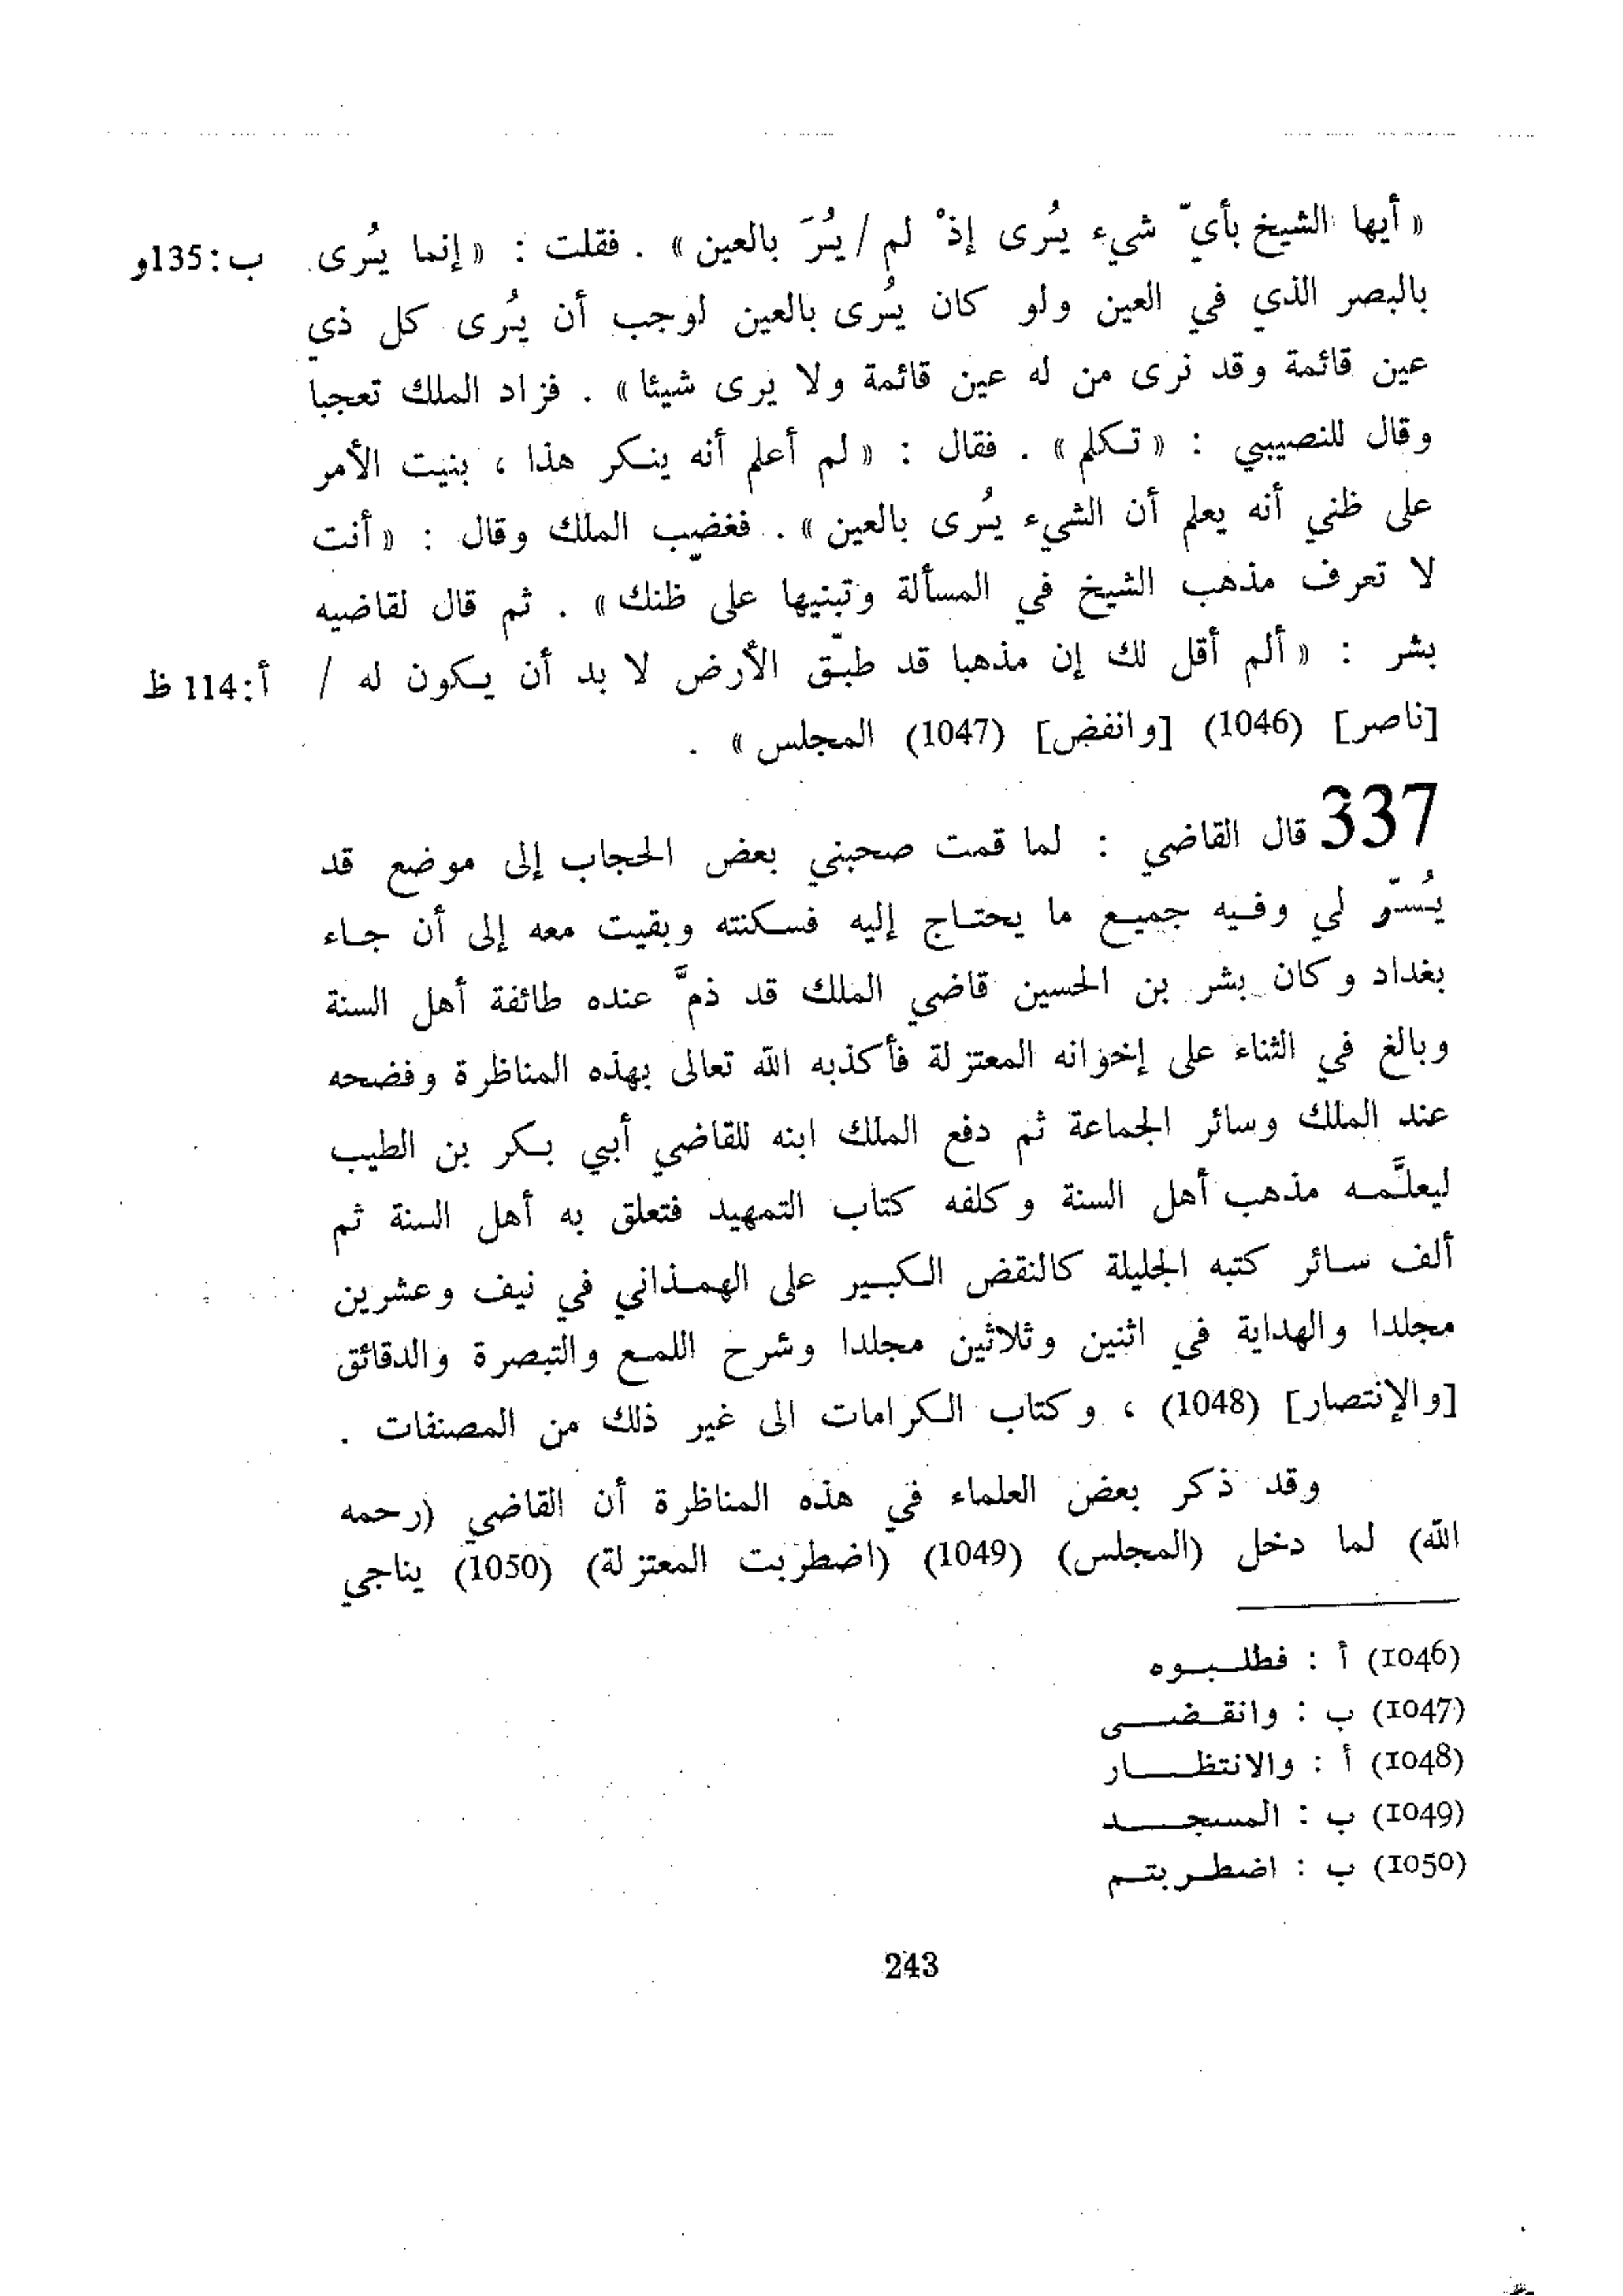 « أيها الشيخ بأيّ شيء يُرى إذْ لم / يُرَ بالعين » . فقلت : « إنما يُرى ب : 135و
بالبصر الذي في العين ولو كان يُرى بالعين لوجب أن يُرى كل ذي
عين قائمة وقد نرى من له عين قائمة ولا يرى شيئا » . فزاد الملك تعجبا
وقال للنصيبي : « تكلم » . فقال : « لم أعلم أنه ينكر هذا ، بنيت الأمر
على ظني أنه يعلم أن الشيء يُرى بالعين » . فغضب الملك وقال : « أنت
لا تعرف مذهب الشيخ في المسألة وتبنيها على ظنك » . ثم قال لقاضيه
بشر : « ألم أقل لك إن مذهبا قد طبّق الأرض لا بد أن يكون له / أ : 114 ظ
[ناصر] (1046) [وانفض] (1047) المجلس » .
337 قال القاضي : لما قمت صحبني بعض الحجاب إلى موضع قد
يُسّر لي وفيه جميع ما يحتاج إليه فسكنته وبقيت معه إلى أن جاء
بغداد وكان بشر بن الحسين قاضي الملك قد ذمَّ عنده طائفة أهل السنة
وبالغ في الثناء على إخوانه المعتزلة فأكذبه الله تعالى بهذه المناظرة وفضحه
عند الملك وسائر الجماعة ثم دفع الملك ابنه للقاضي أبي بكر بن الطيب
ليعلَّمه مذهب أهل السنة وكلفه كتاب التمهيد فتعلق به أهل السنة ثم
ألف سائر كتبه الجليلة كالنقض الكبير على الهمذاني في نيف وعشرين
مجلدا والهداية في اثنين وثلاثين مجلدا وشرح اللمع والتبصرة والدقائق
[والإنتصار] (1048) ، وكتاب الكرامات الى غير ذلك من المصنفات .
وقد ذكر بعض العلماء في هذه المناظرة أن القاضي (رحمه
الله) لما دخل (المجلس) (1049) (اضطربت المعتزلة) (1050) يناجي
(1046) أ : فطلبوه
(1047) ب : وانقضى
(1048) أ : والانتظار
(1049) ب : المسجد
(1050) ب : اضطربتم
243